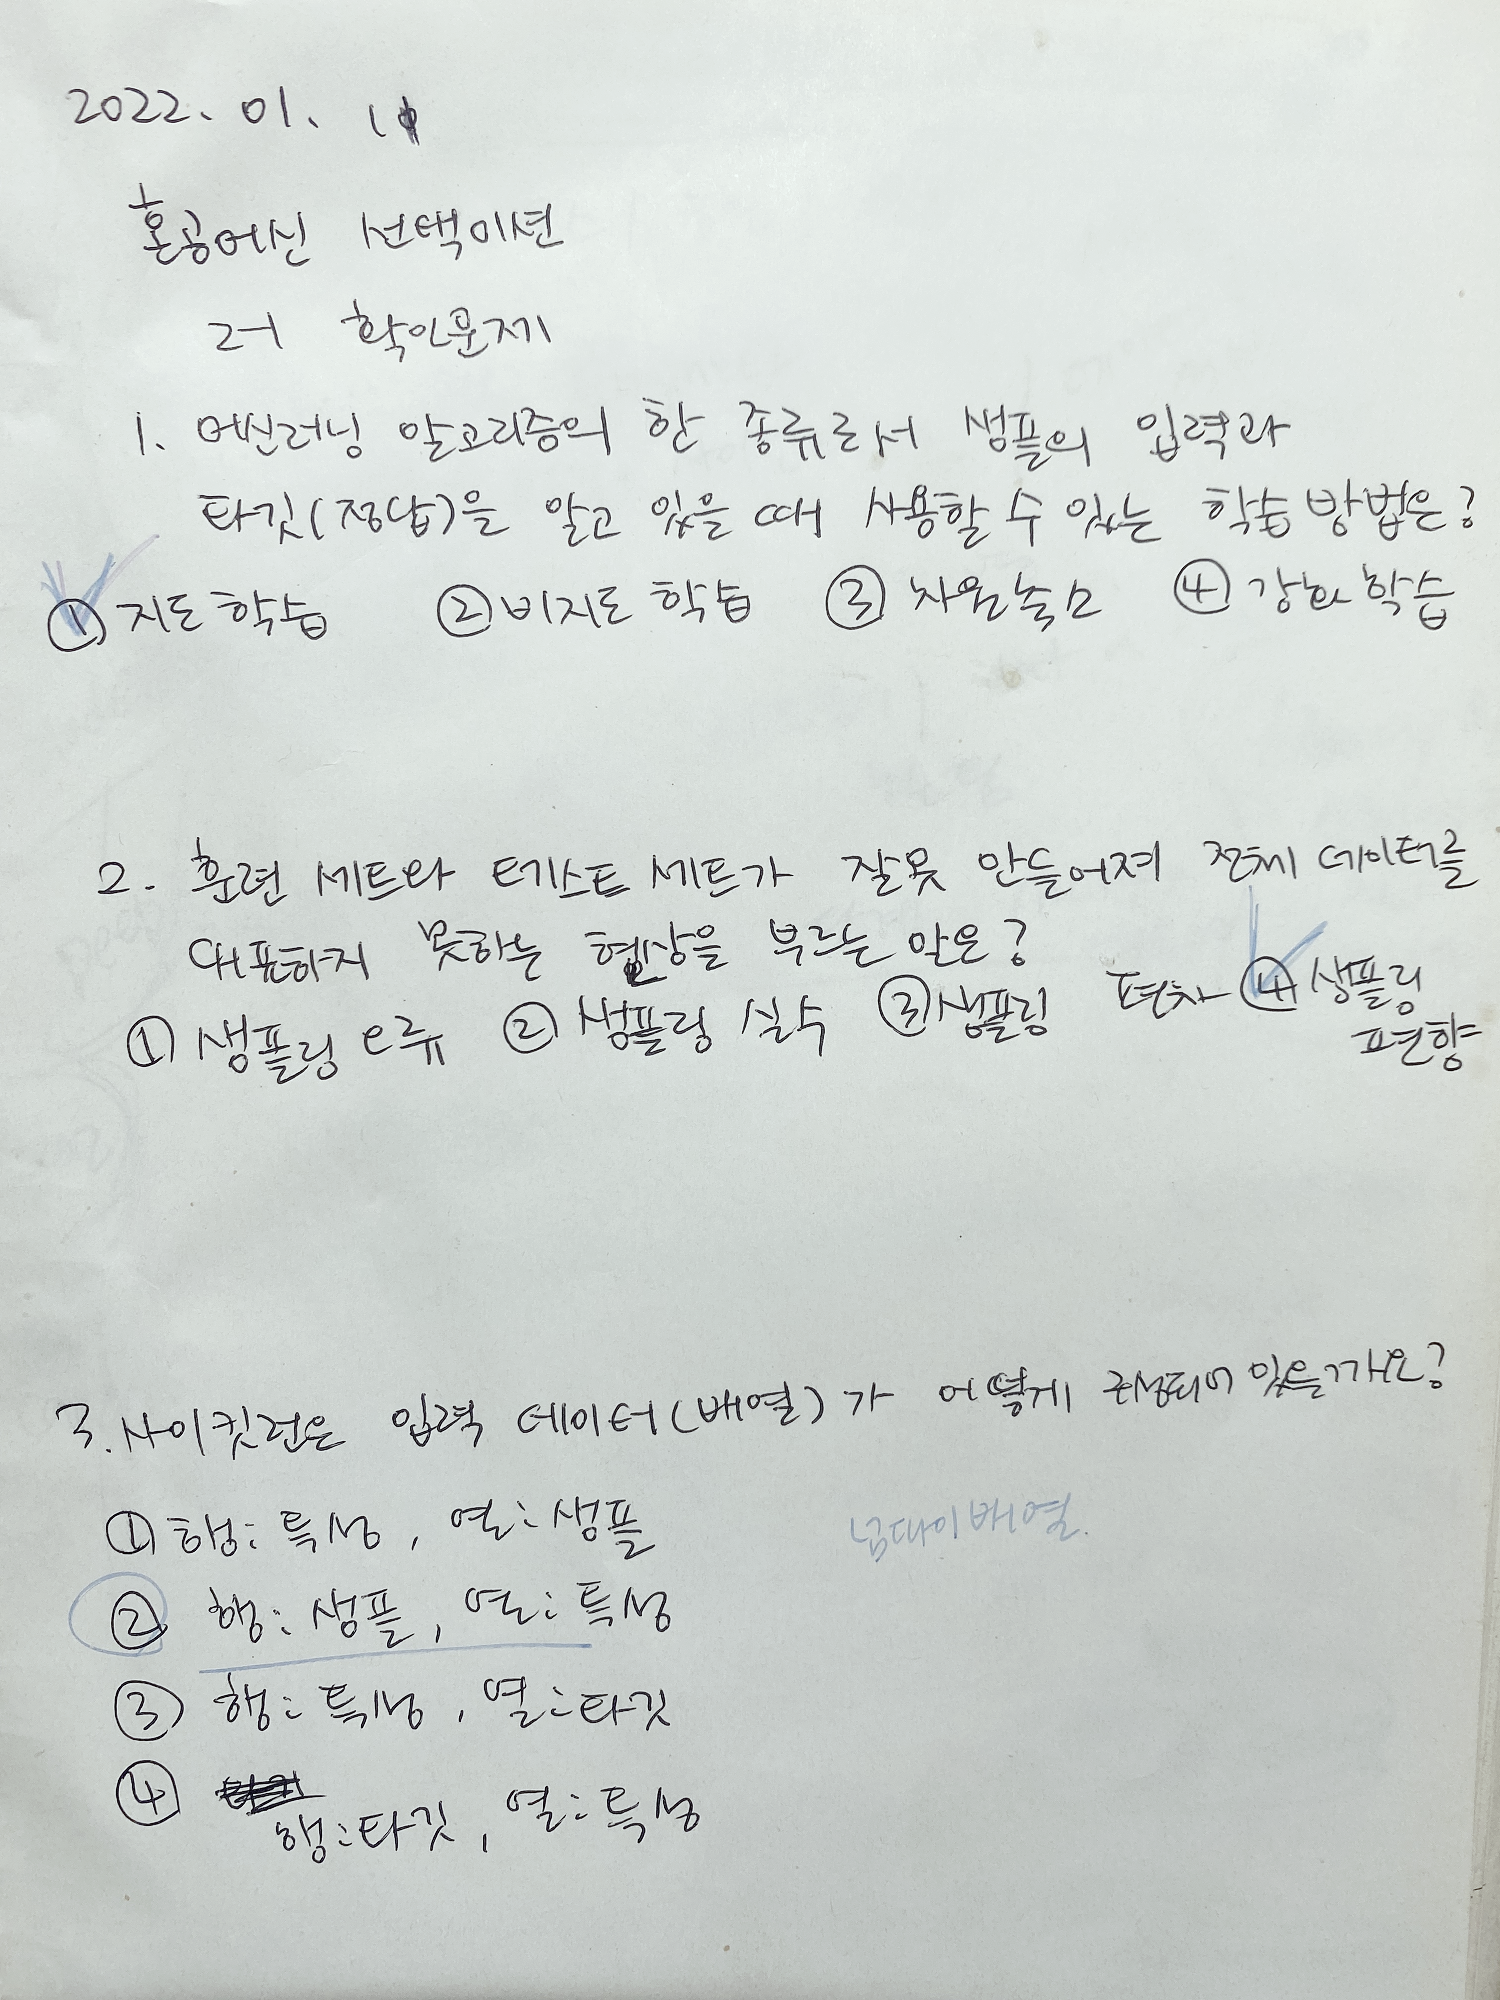 2022. 01. 11
혼공머신 선택미션
2-1 확인문제
1. 머신러닝 알고리즘의 한 종류로서 샘플의 입력과
타깃(정답)을 알고 있을 때 사용할 수 있는 학습 방법은?
① 지도 학습 ② 비지도 학습 ③ 차원축소 ④ 강화학습
2. 훈련 세트와 테스트 세트가 잘못 만들어져 전체 데이터를
대표하지 못하는 현상을 부르는 말은?
① 샘플링 오류 ② 샘플링 실수 ③ 샘플링 편차 ④ 샘플링
편향
3. 사이킷런은 입력 데이터(배열)가 어떻게 구성되어 있을까요?
① 행: 특성, 열: 샘플
넘파이배열.
② 행: 샘플, 열: 특성
③ 행: 특성, 열: 타깃
④
행: 타깃, 열: 특성